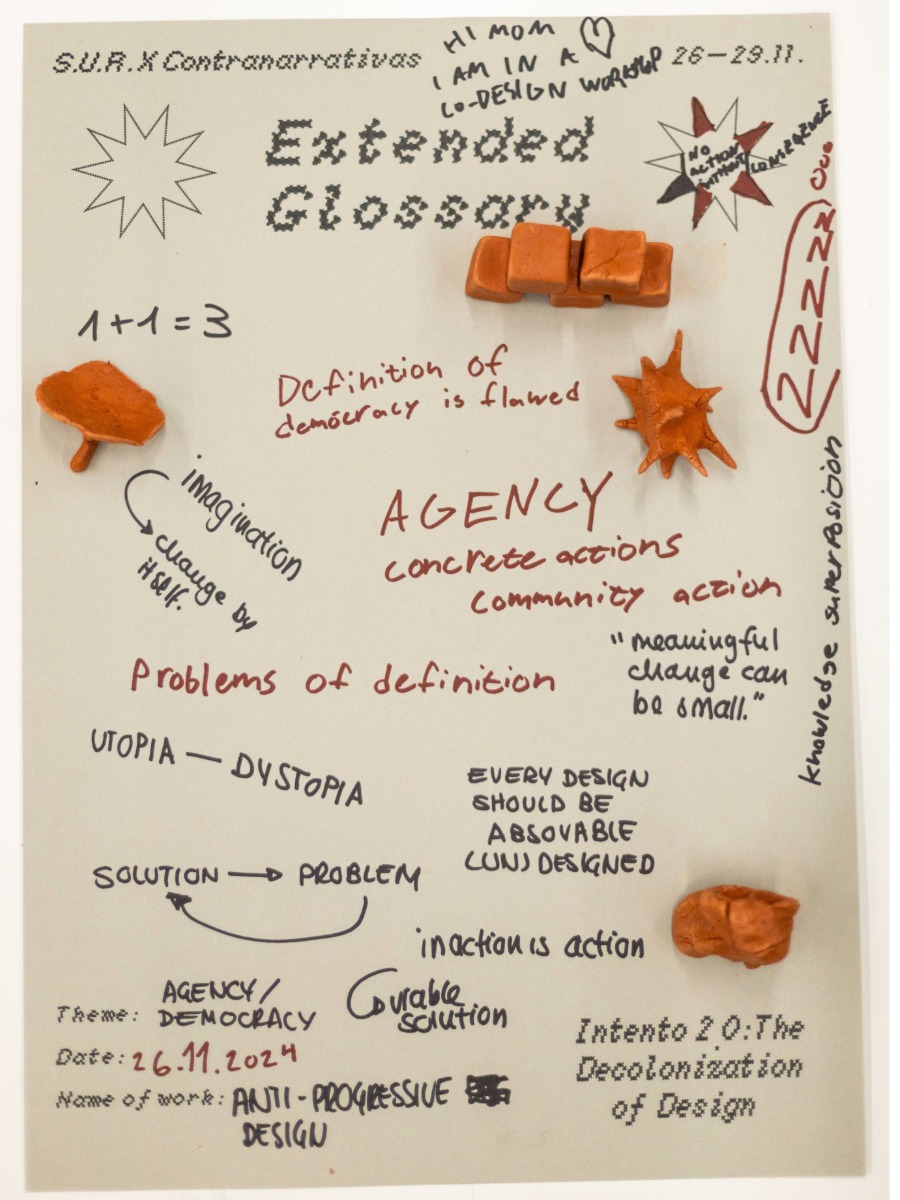 S.U.R. X Contranarrativas
HI MOM ♡
I AM IN A
CO-DESIGN WORKSHOP
26—29.11.
Extended
Glossary
NO
ACTION
WITHOUT
CONSEQUENCE
1+1=3
Definition of
democracy is flawed
imagination
change by
itself.
AGENCY
concrete actions
community action
"meaningful
change can
be small."
knowledge superposition
Problems of definition
UTOPIA — DYSTOPIA
EVERY DESIGN
SHOULD BE
ABSOVABLE
(UN) DESIGNED
SOLUTION → PROBLEM
inaction is action
Theme: AGENCY/
DEMOCRACY
durable
solution
Date: 26.11.2024
Name of work: ANTI-PROGRESSIVE
DESIGN
Intento 2.0: The
Decolonization
of Design